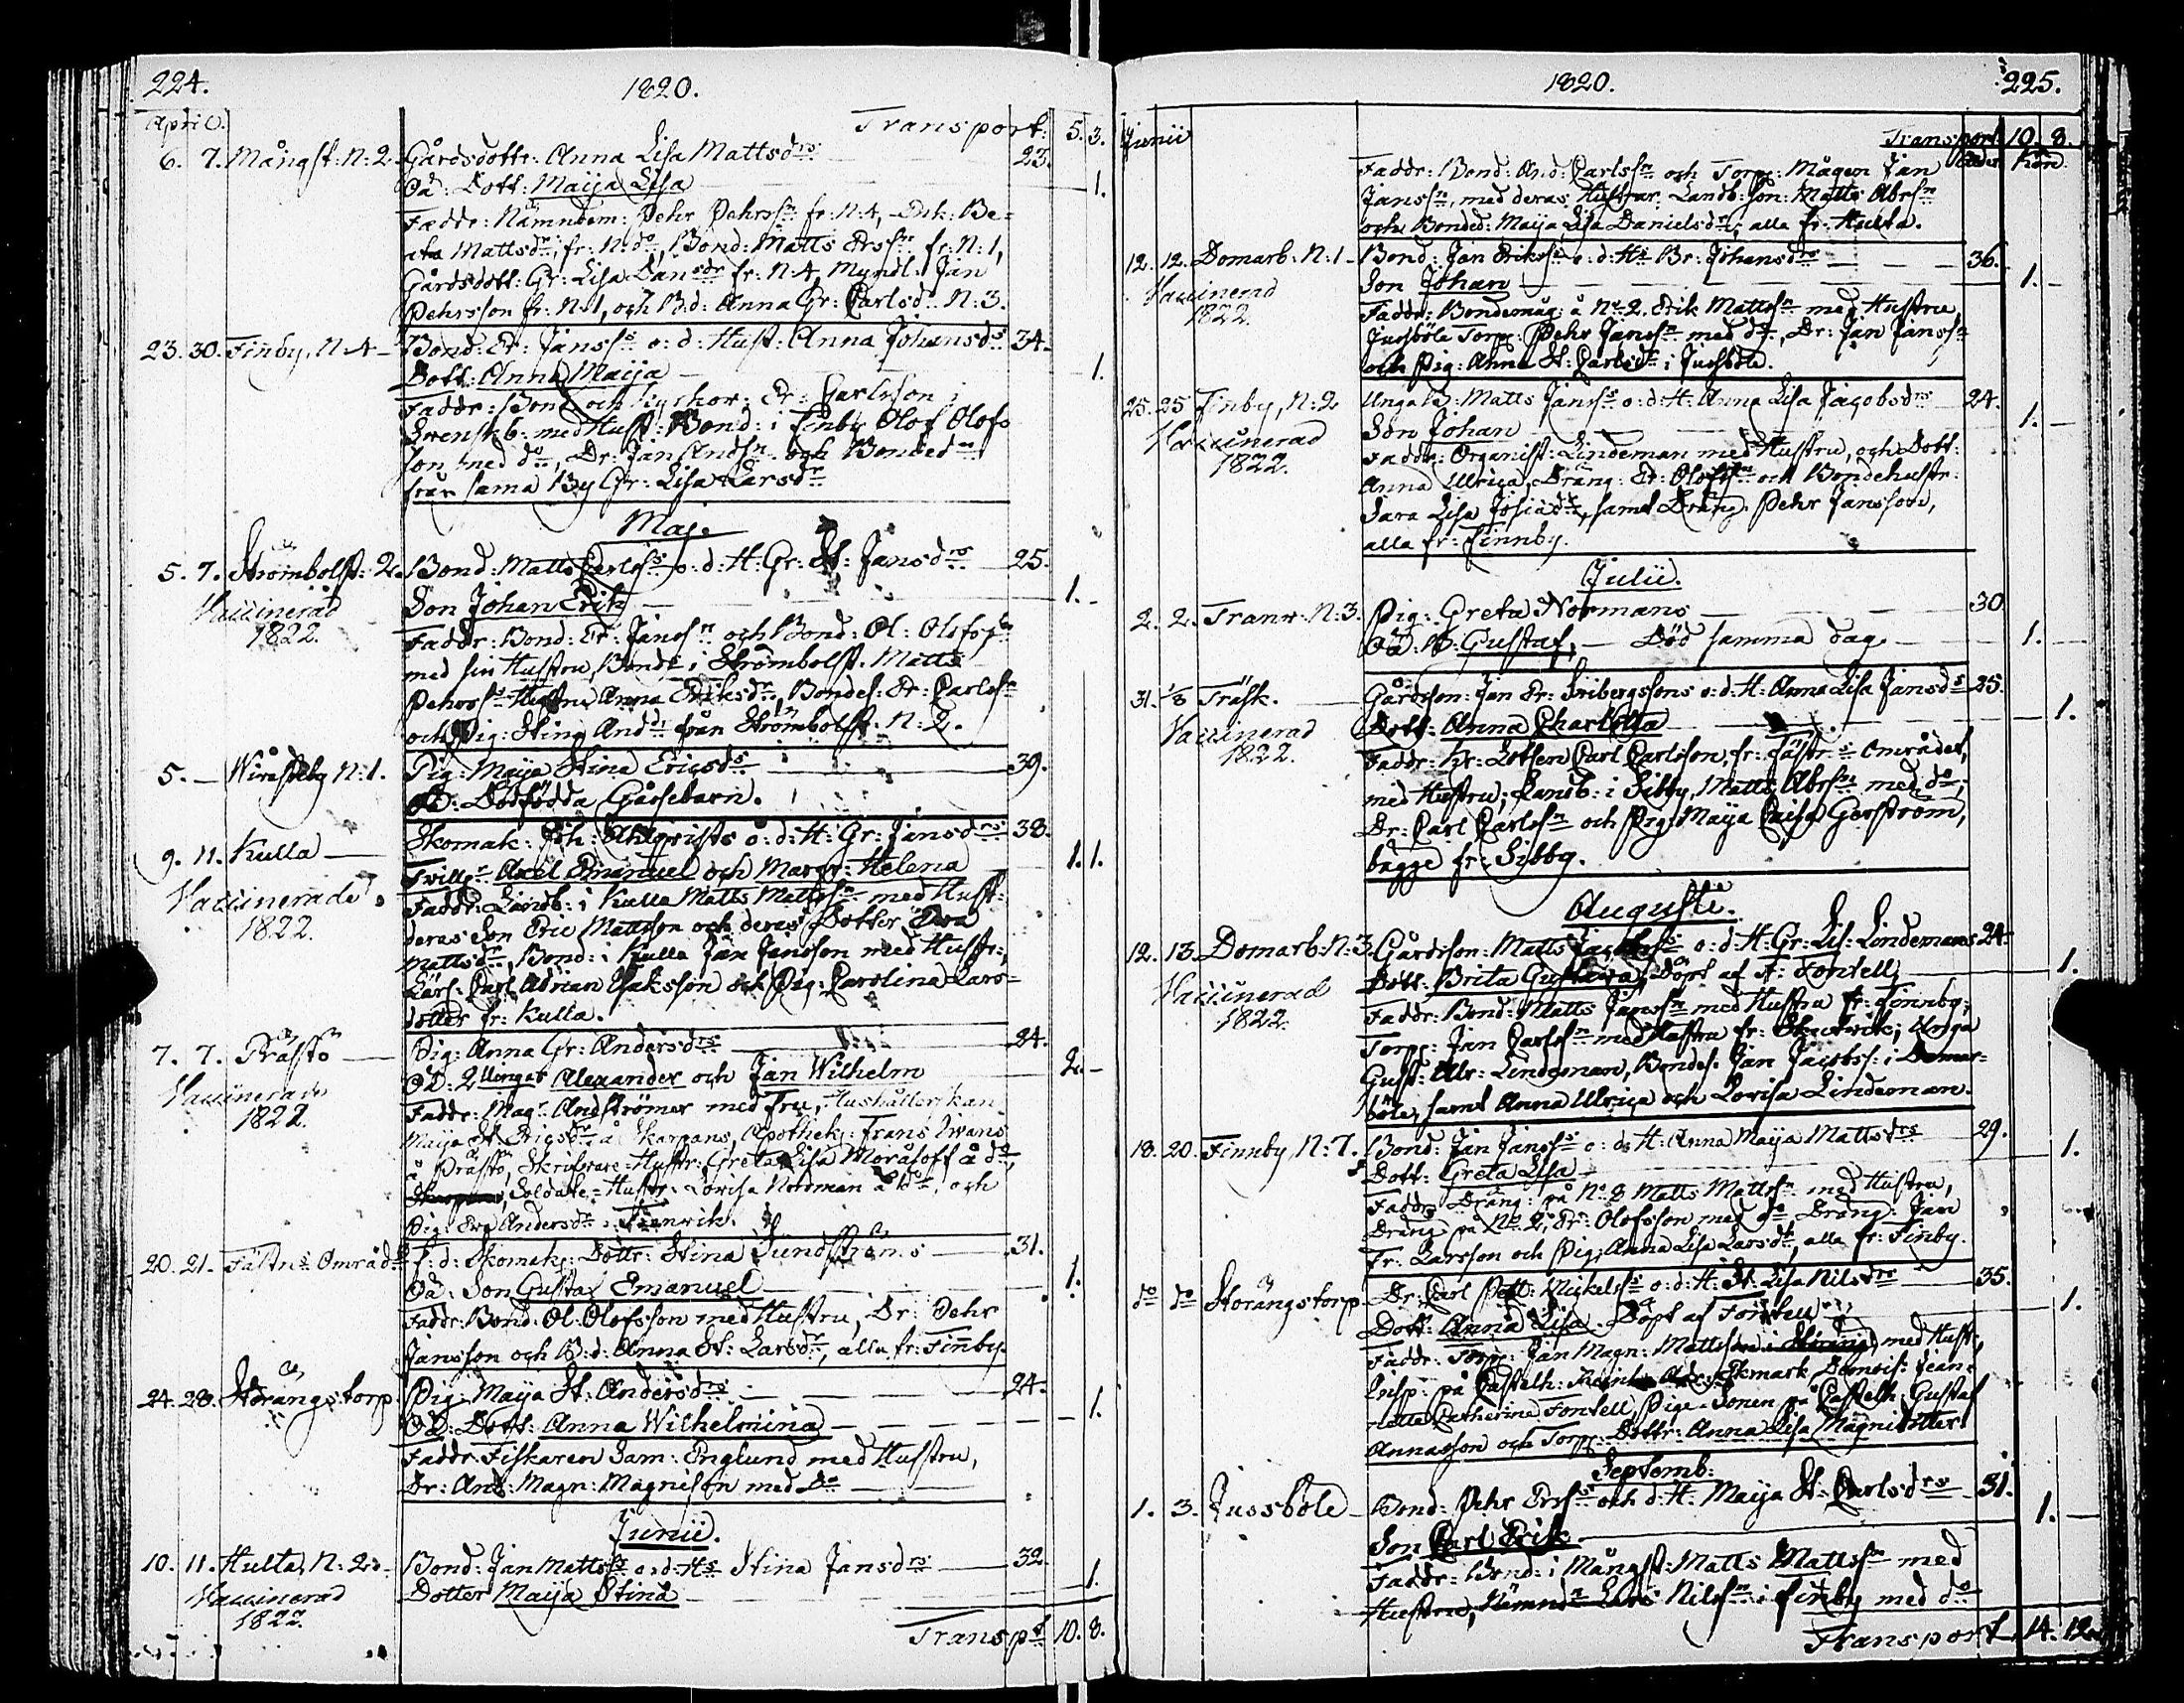 224.
1820.
April.
Transport: 5. 3.
6. 7. Mångst: N: 2. Gårdsdottr: Anna Lisa Mattsdrs 23.
Oä: Dott: Maija Lisa 1.
Faddr: Nämndem: Pehr Pehrssn fr: N: 4, Enk: Be-
ata Mattsdr, fr: N: do, Bond: Matts Erssn fr: N: 1,
Gårdsdott: Gr: Lisa Dansdr fr: N: 4, Myndl: Jan
Pehrsson fr: N: 1, och B:d: Anna Gr: Carlsdr N: 3.
23. 30. Finby, N: 4 Bond: Er: Jansss o: d: Hust: Anna Johansdrs 34.
Dott: Anna Maija 1.
Faddr: Bond och Kyrkov: Er: Carlsson i
Svenskb: med Hust: Bond: i Finby Olof Olofs
son med do, Dr: Jan Andsn och Bonded
från sama By Gr: Lisa Larsdr
Maj.
5. 7. Strömbolst: 2. Bond: Matts Carlsss o: d: H: Gr: St: Jansdrs 25.
Vaccinerad
1822.
Son Johan Erik 1.
Faddr: Bond: Er: Janssn och Bond: Ol: Olofssn
med sin Hustru, Bond: i Strömbolst. Matts
Pehrsss Hustru Anna Eriksdr, Bondes: Er: Carlssn
och Pig: Stina Anddr från Strömbolst. N: 2.
5. Wårstaby N: 1. Pig: Maija Stina Ericsds 39.
Oä: Dödfödda Gåssebarn.
9. 11. Kulla Skomak: Joh: Ahlqvists o: d: H: Gr: Jansdrs 38.
Vaccinerade
1822.
Tvillr Axel Emanuel och Margr: Helena 1. 1.
Faddr: Landb: i Kulla Matts Mattssn med Hust:
deras Son Eric Mattson och deras Dotter Ewa
Mattsdr, Bond: i Kulla Jan Jansson med Hustr:,
Lärl: Carl Adrian Isaksson och Pig: Carolina Lars-
dotter fr: Kulla.
7. 7. Prästö Pig: Anna Gr: Andersdrs 24.
Vaccinerade
1822.
Oä: 2llingar Alexander och Jan Wilhelm 2.
Faddr: Magr Andströmer med Fru, Hushållerskan
Maija St. Ericsdr å Skarpans, Apothek: Frans Iwans
å Prästö, Skrifvare-Hustr: Greta Lisa Moråsoff å do,
Soldate-Hustr: Lovisa Nordman å do, och
Pig: Eva Andersdr i Tranvik.
20. 21. Fästns Områd: f: d: Skomak: Dottr: Stina Sundströms 31.
Oä: Son Gustaf Emanuel 1.
Faddr: Bond: Ol: Olofsson med Hustru, Dr: Pehr
Jansson och B: d: Anna St: Larsdr, alla fr: Finby
24. 28. Storängstorp Pig: Maija St: Andersdrs 24.
Oä: Dott: Anna Wilhelmina 1.
Faddr: Fiskaren Sam: Englund med Hustru,
Dr: And: Magn: Magnison med Do
Junii.
10. 11. Hulta, N: 2. Bond: Jan Mattsss o: d: Hs Stina Jansdrs 32.
Vaccinerad
1822.
Dotter Maija Stina 1.
Transpt 10. 8.
1820.
225.
Junii
Transport 10. 8.
Faddr: Bond: And: Carlssn och Torp: Mågen Jan
Janssn, med deras Hustrur, Landb: son: Matts Abrsn
och Bonded: Maija Lisa Danielsdr, alla fr: Hulta.
12. 12. Domarb: N: 1. Bond: Jan Erikss o: d: Hs Br: Johansdrs 36.
Vaccinerad
1822.
Son Johan 1.
Faddr: Bondemåg: å No 2. Erik Mattssn med Hustru,
Jussböle Torp: Pehr Janssn med do, Dr: Jan Janssn
och Pig: Anna St: Carlsdr i Jussböle.
25. 25 Finby, N: 2 Unga B: Matts Jansss o: d: H: Anna Lisa Jacobsdrs 24.
Vaccinerad
1822.
Son Johan 1.
Faddr: Organist: Lindeman med Hustru, och Dott:
Anna Ulrica, Dräng: Er: Olofssn och Bondehustr:
Sara Lisa Josiädr, samt Dräng: Pehr Jansson,
alla fr: Finnby.
Julii.
2. 2. Tranv: N: 3. Pig: Greta Normans 30
Oä: S: Gustaf, Död samma dag 1.
31. 1/8 Träsk. Gårdsson: Jan Er: Sribergssons o: d: H: Anna Lisa Jansds 25.
Vaccinerad
1822.
Dott: Anna Charlotta 1.
Faddr: Kr: Lotsen Carl Carlsson, fr: Fästns Området,
med Hustru; Landb: i Sibby, Matts Abrssn med do,
Dr: Carl Carlssn och Pig: Maija Caisa Gerström,
bägge fr: Sibby.
Augusti.
12. 13. Domarb: N: 3. Gårdsson: Matts Jacobsss o: d: H: Gr: Lis: Lindemans 24.
Vaccinerad
1822.
Dott: Brita Gustava, Döpt af A: Fontell 1.
Faddr: Bond: Matts Janssn med Hustru fr: Finnby;
Torp: Jan Carlssn med Hustru fr: Skutvik; Unga
Gust: Ulr: Lindeman, Bondes: Jan Jacobss: i Domar-
böle, samt Anna Ulrica och Lovisa Lindeman.
18. 20. Finnby N: 7. Bond: Jan Jansss o: d: H: Anna Maija Mattsdrs 29.
Dott: Greta Lisa 1.
Faddr: Dräng: på No 8 Matts Mattssn med Hustru,
Dräng på No 2, Er: Olofsson med do, Dräng: Jan
Er: Larsson och Pig: Anna Lisa Larsdr, alla fr: Finby.
do do Storängstorp Dr: Carl Pett: Mickelss o: d: H: St: Lisa Nilsdrs 35.
Dott: Anna Lisa. Döpt af Fontell 1.
Faddr: Torp: Jan Magn: Mattsson i Storäng med Hust:,
Insp: på Castelh: Ekmark Demois: Jean-
nette Catherina Fontell, Pige-Sonen på Castelh: Gustaf
Annasson och Torp: Dottr: Anna Lisa Magnidotter.
Septemb:
1. 3. Jussböle Bond: Pehr Ersss och d: H: Maija St: Carlsdrs 31.
Son Carl Erik 1.
Faddr: Bond: i Mångst: Matts Mattssn med
Hustru, Nämndn Lars Nilssn i Finby med do
Transport 14. 12.